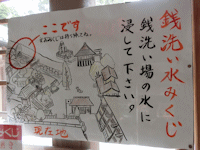 銭洗い水みくじ
銭洗い場の水に
浸して下さい。
ここです
現在地